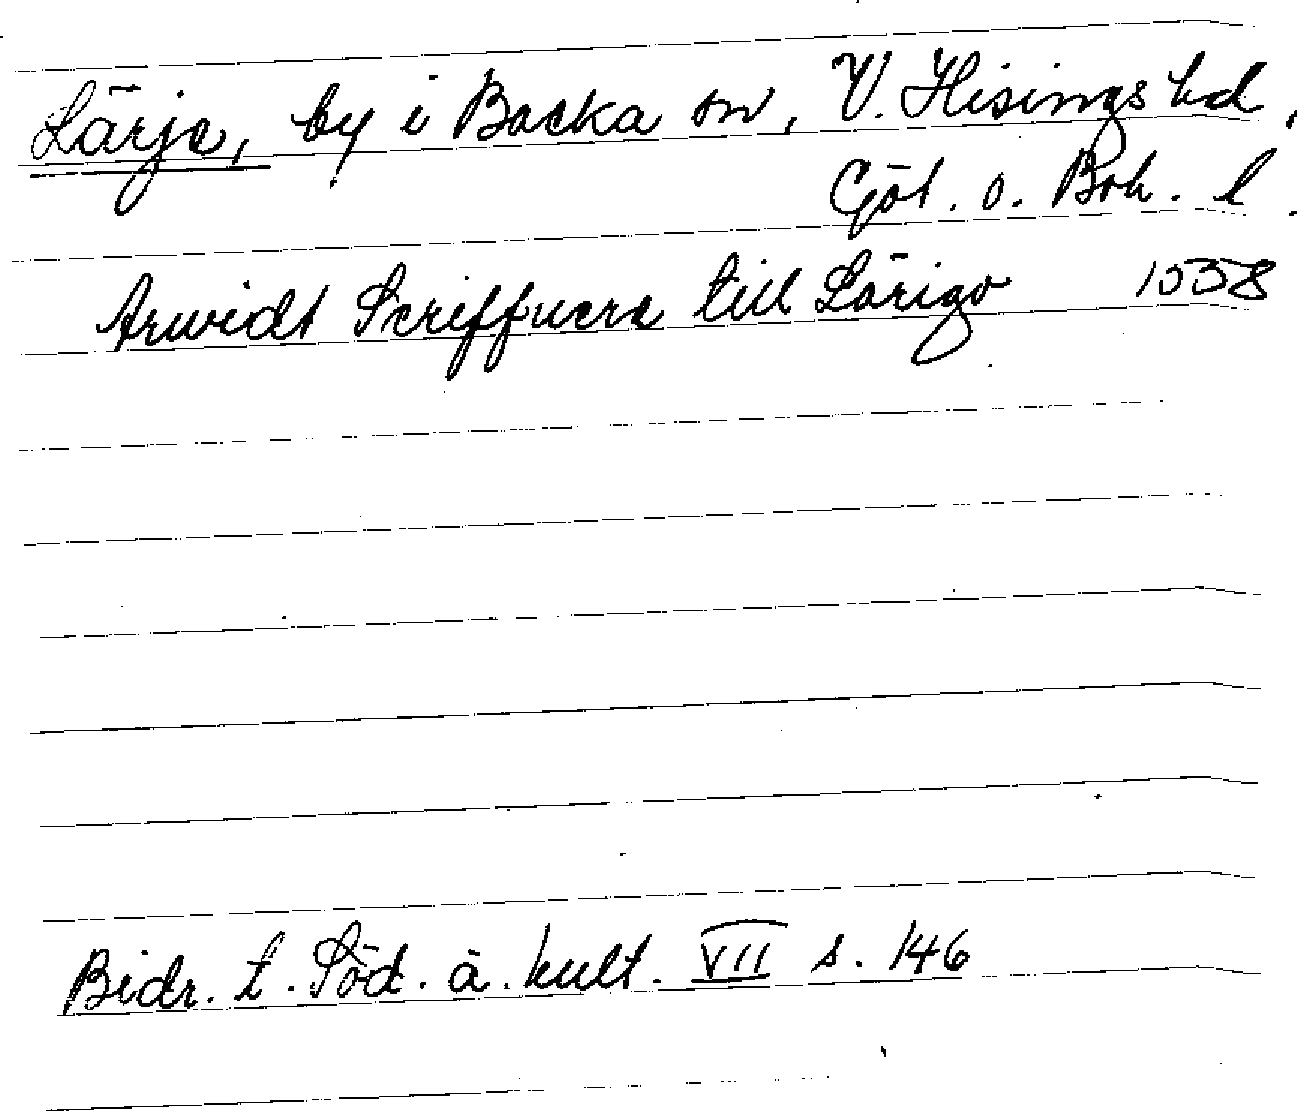 Lärje, by i Backa sn, V. Hisings hd,
Göt. o. Boh. l.
Arwidt Scriffuere till Lärigo 1558
Bidr. t. Söd. ä. kult. VII s. 146